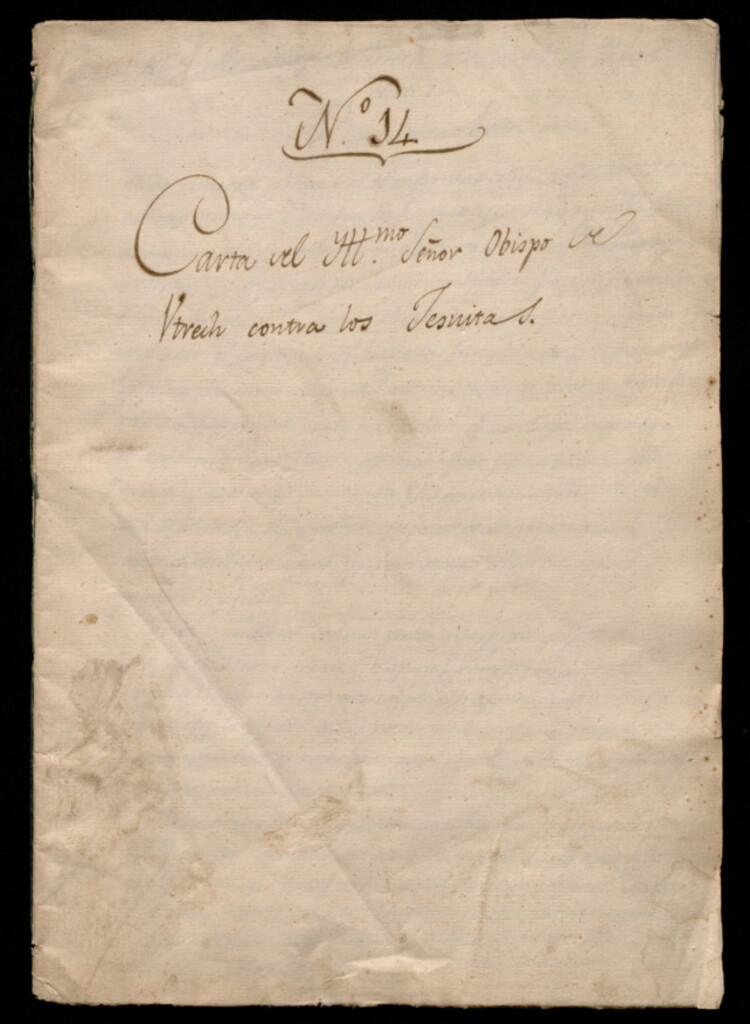 N.º 14
Carta del Yll.mo Señor Obispo de
Vtrech contra los Jesuitas.